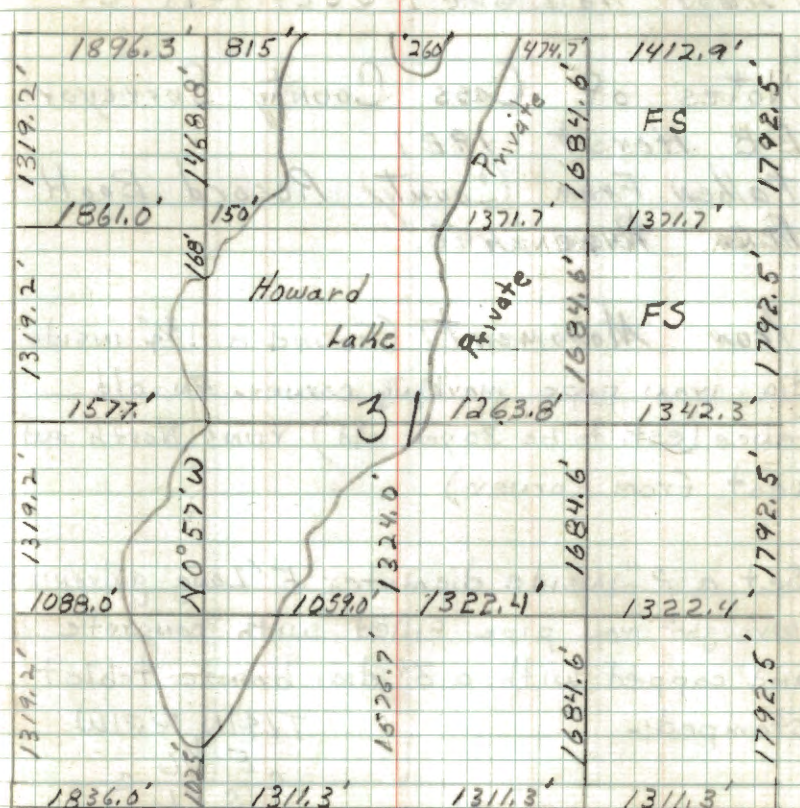 1896.3' 815' 260' 474.7' 1412.9'
1319.2' 1468.8' Private 1684.6' FS 1792.5'
1861.0' 150' 1371.7' 1371.7'
168'
1319.2' Howard Lake Private 1684.6' FS 1792.5'
1577.' 31 1263.8' 1342.3'
1319.2' N0°57'W 1324.0' 1684.6' 1792.5'
1088.0' 1059.0' 1322.4' 1322.4'
1319.2' 1684.6' 1792.5'
1836.0' 1311.3' 1311.3' 1311.3'